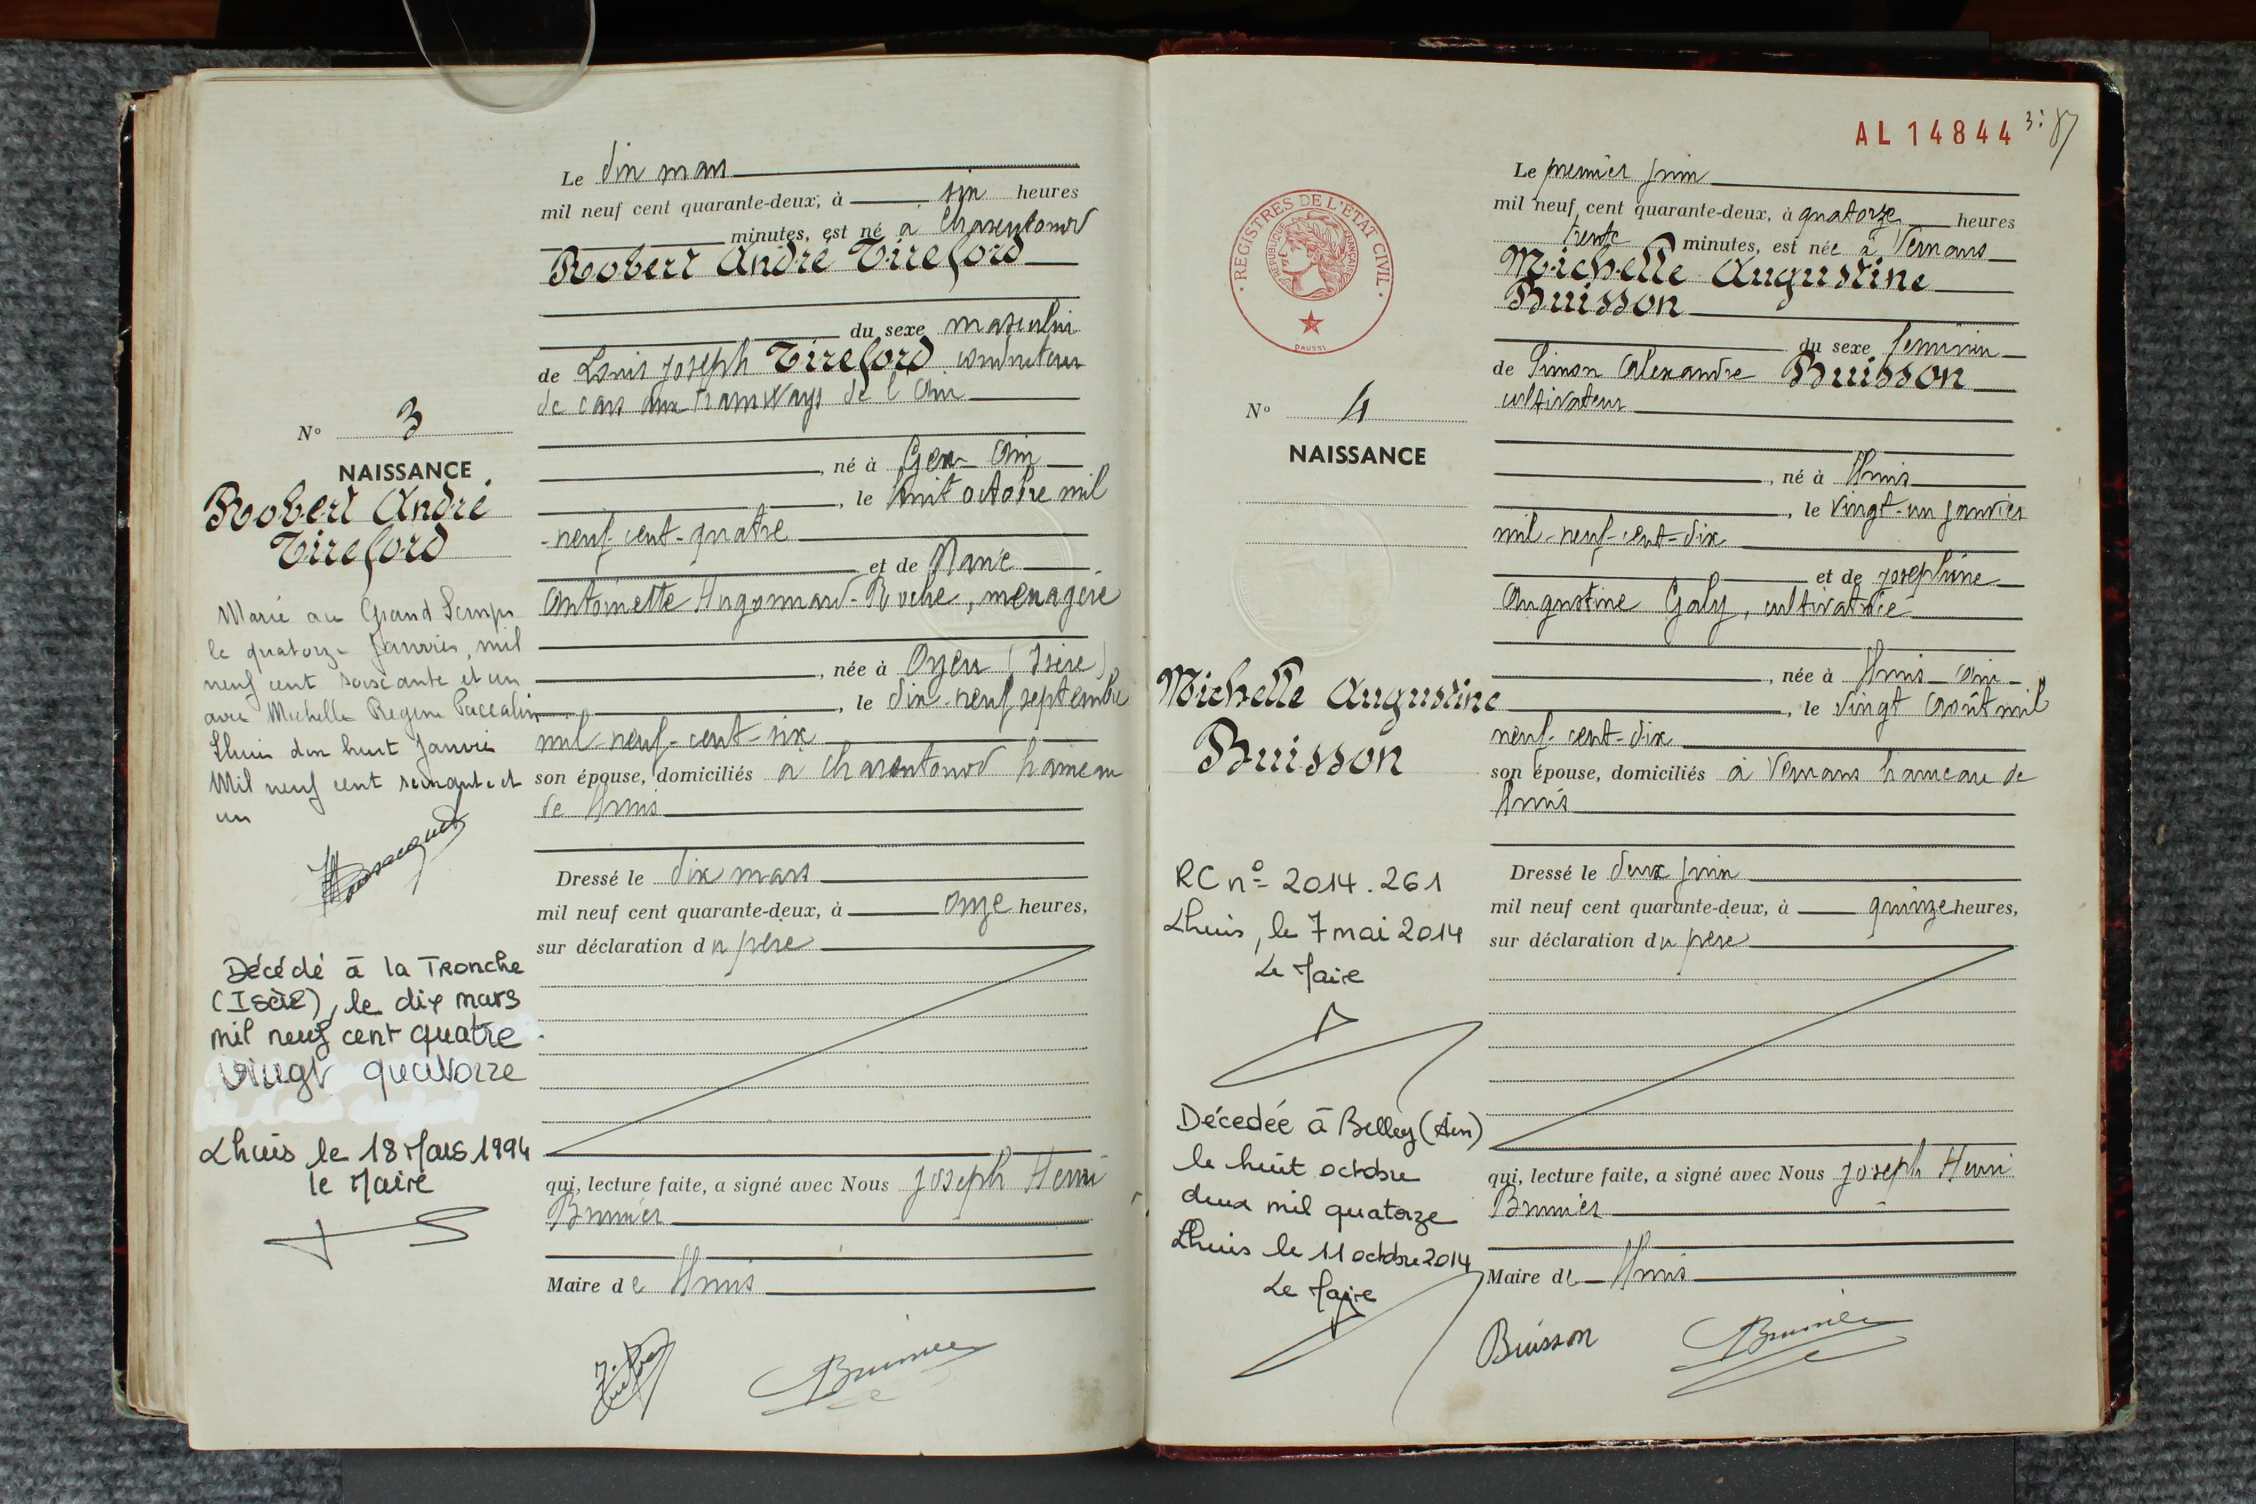 Le dix mars
mil neuf cent quarante-deux, à six heures
minutes, est né à Charentonod
Robert André Tireford
du sexe masculin
de Louis Joseph Tireford conducteur
de cars aux tramways de l'Ain
N° 3
NAISSANCE
Robert André
Tireford
, né à Gex Ain
, le huit octobre mil
-neuf-cent-quatre
et de Marie
Antoinette Hugonnard-Roche, ménagère
, née à Oyeu (Isère)
, le dix-neuf septembre
mil-neuf-cent-six
son épouse, domiciliés à Charentonod hameau
de Lhuis
Marié au Grand Lemps
le quatorze Janvier, mil
neuf cent soixante et un
avec Michelle Regine Paccalin
Lhuis dix huit Janvier
Mil neuf cent soixante et
un
Dressé le dix mars
mil neuf cent quarante-deux, à onze heures,
sur déclaration du père
Décédé à la Tronche
(Isère), le dix mars
mil neuf cent quatre
vingt quatorze
Lhuis le 18 Mars 1994
le Maire
qui, lecture faite, a signé avec Nous Joseph Henri
Brunier
Maire de Lhuis
Brunier
AL 14844
Le premier juin
mil neuf cent quarante-deux, à quatorze heures
trente minutes, est née à Vernans
Michelle Augustine
Buisson
du sexe féminin
de Simon Alexandre Buisson
cultivateur
REGISTRES DE L'ÉTAT CIVIL
RÉPUBLIQUE FRANÇAISE
DAUSSI
N° 4
NAISSANCE
, né à Lhuis
, le vingt-un janvier
mil-neuf-cent-dix
et de Joséphine
Augustine Galy, cultivatrice
, née à Lhuis Ain
, le vingt août mil
neuf-cent-dix
son épouse, domiciliés à Vernans hameau de
Lhuis
Michelle Augustine
Buisson
RC n° 2014.261
Lhuis, le 7 mai 2014
Le Maire
Dressé le deux juin
mil neuf cent quarante-deux, à quinze heures,
sur déclaration du père
Décedée à Belley (Ain)
le huit octobre
deux mil quatorze
Lhuis le 11 octobre 2014
Le Maire
qui, lecture faite, a signé avec Nous Joseph Henri
Brunier
Maire de Lhuis
Buisson Brunier